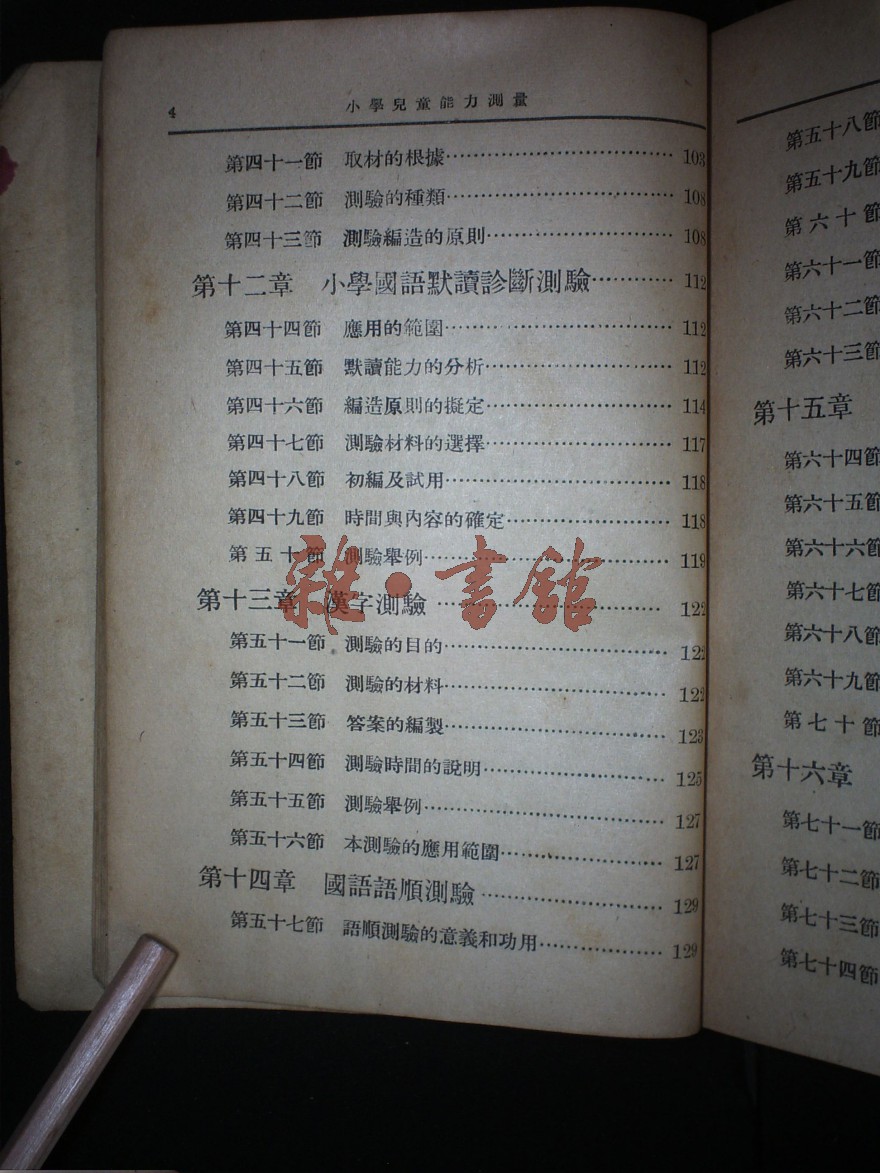 4 小學兒童能力測量
第四十一節 取材的根據………………………… 103
第四十二節 測驗的種類………………………… 108
第四十三節 測驗編造的原則…………………… 108
第十二章 小學國語默讀診斷測驗………… 112
第四十四節 應用的範圍………………………… 112
第四十五節 默讀能力的分析…………………… 112
第四十六節 編造原則的擬定…………………… 114
第四十七節 測驗材料的選擇…………………… 117
第四十八節 初編及試用………………………… 118
第四十九節 時間與內容的確定………………… 118
第五十節 測驗舉例……………………………… 119
第十三章 漢字測驗 ………………………… 122
第五十一節 測驗的目的………………………… 122
第五十二節 測驗的材料………………………… 122
第五十三節 答案的編製………………………… 123
第五十四節 測驗時間的說明…………………… 125
第五十五節 測驗舉例…………………………… 127
第五十六節 本測驗的應用範圍………………… 127
第十四章 國語語順測驗 …………………… 129
第五十七節 語順測驗的意義和功用…………… 129
雜·書館
第五十八節
第五十九節
第六十節
第六十一節
第六十二節
第六十三節
第十五章
第六十四節
第六十五節
第六十六節
第六十七節
第六十八節
第六十九節
第七十節
第十六章
第七十一節
第七十二節
第七十三節
第七十四節